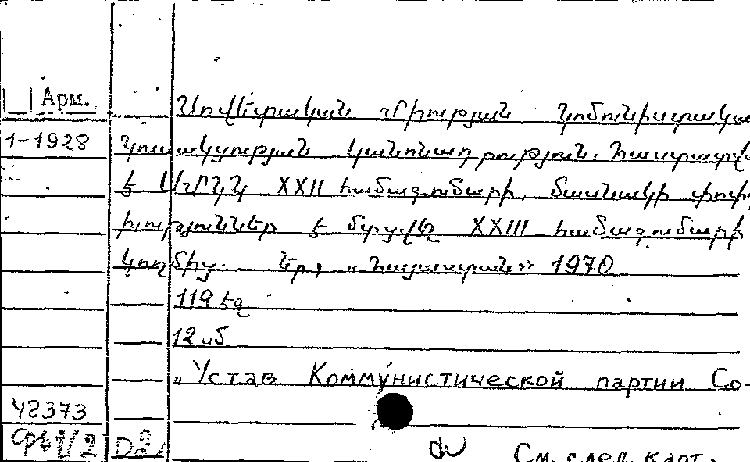 Арм.
Սովետական Միության կոմունիստական
1-1928
կուսակցության կանոնադրություն. Հաստատվ
է ՍՄԿԿ XXII համագումարի, մասնակի փոփ
խություններ է մտցվել XXIII համագումարի
կողմից. Եր., «Հայաստան» 1970
119 էջ
12 սմ
„Устав Коммунистической партии Со-
42373
D2
См. след. карт.